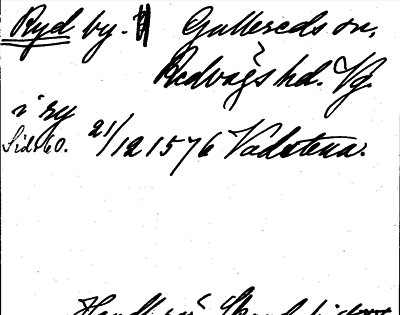 Ryd by. Gullereds sn,
Redvägs hd. Vg.
i ry
Sid. 60. 21/12 1576 Vadstena.
Handl. rör